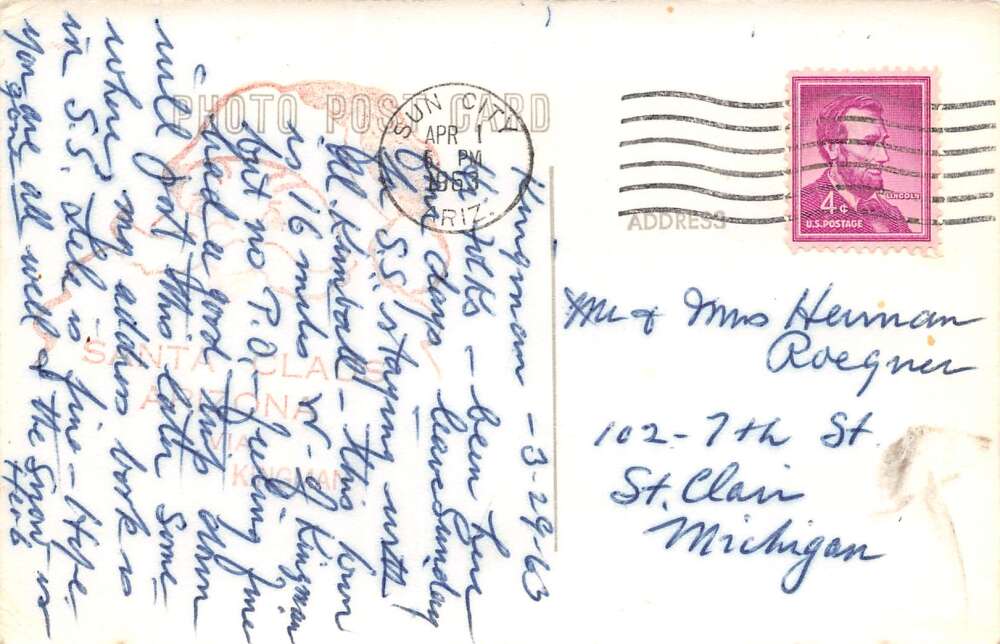 PHOTO POST CARD
SUN CITY
APR 1
PM
1963
ARIZ.
LINCOLN
4¢
U.S. POSTAGE
ADDRESS
Kingman - 3-29-63
Folks - been here
days leave Sunday
S.S. staying with
Al Kimball - this town
is 16 miles N- of Kingman
but no P.O. - feeling fine
had a good trip down
will this later some
where my address book is
in S.S. is fine - Hope
you are all well & the snow is
gone Herb
SANTA CLAUS
ARIZONA
VIA
KINGMAN
Mr & Mrs Herman
Roegner
102-7th St.
St. Clair
Michigan